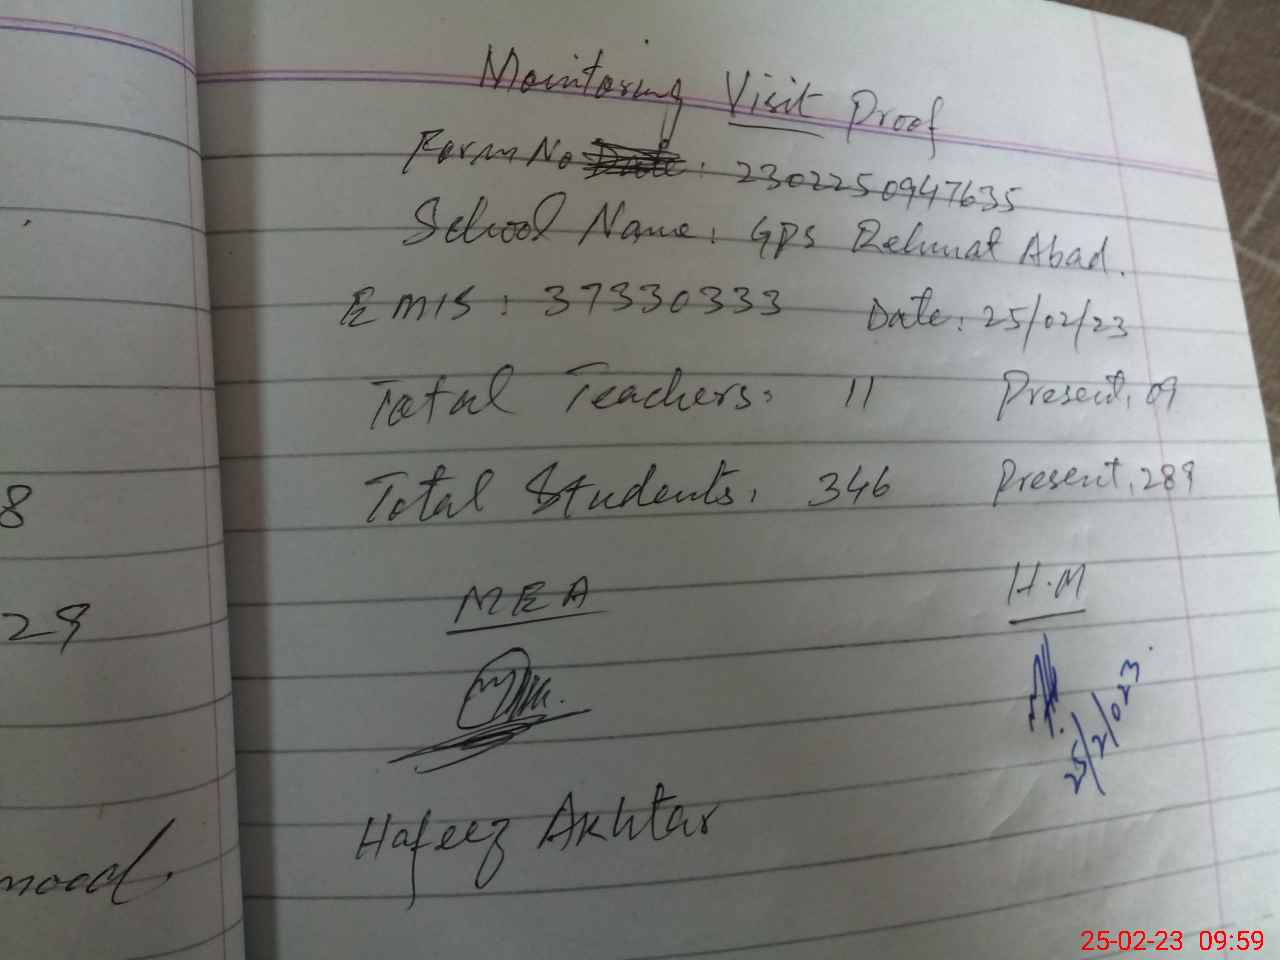 Monitoring Visit Proof
Form No : 2302250947635
School Name: GPS Rehmat Abad.
EMIS : 37330333 Date: 25/02/23
Total Teachers: 11 Present: 09
Total Students: 346 Present: 289
MEA H.M
25/2/023.
Hafeez Akhtar
8
29
mood.
25-02-23 09:59